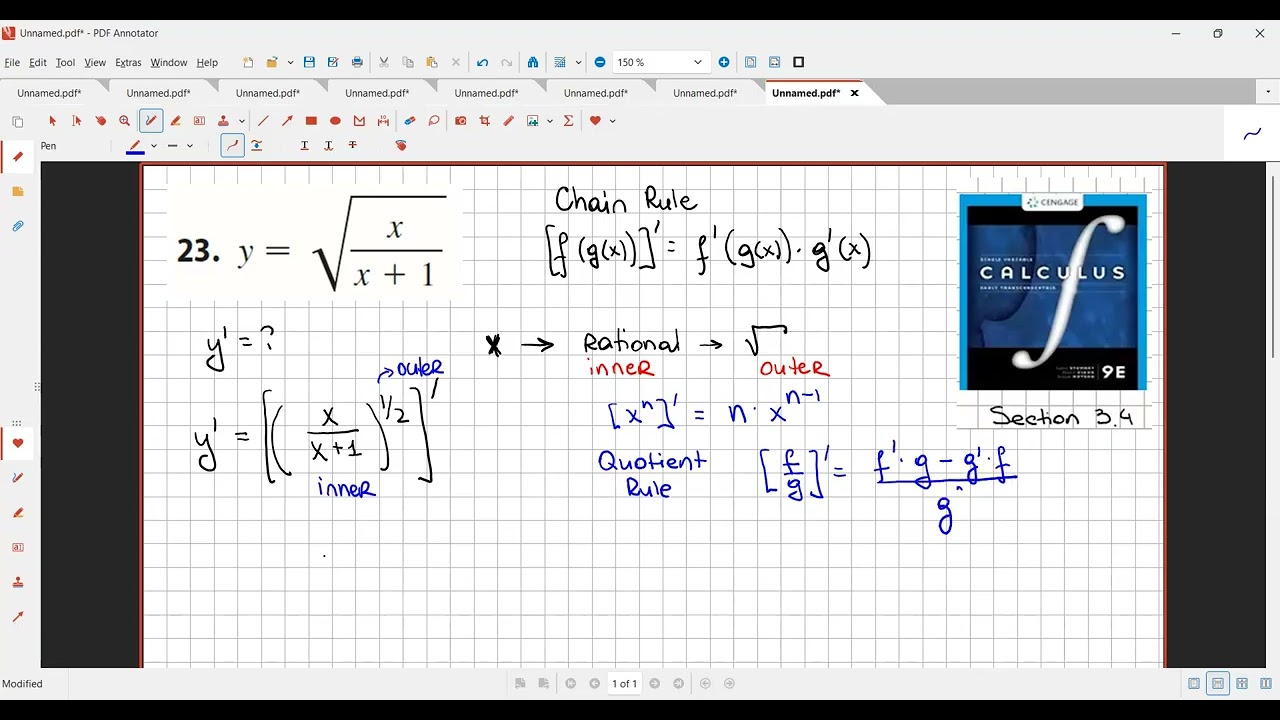 Unnamed.pdf* - PDF Annotator
File Edit Tool View Extras Window Help
150 %
Unnamed.pdf* Unnamed.pdf* Unnamed.pdf* Unnamed.pdf* Unnamed.pdf* Unnamed.pdf* Unnamed.pdf* Unnamed.pdf*
Pen
23. y = √(x/(x + 1))
Chain Rule
[f(g(x))]' = f'(g(x)) · g'(x)
CENGAGE
SINGLE VARIABLE
CALCULUS
EARLY TRANSCENDENTALS
9E
Section 3.4
y' = ?
x → Rational → √
inner outer
→ outer
y' = [(x/(x+1))^1/2]'
inner
[x^n]' = n · x^n-1
Quotient
Rule
[f/g]' = (f' · g - g' · f)/g
Modified
1 of 1